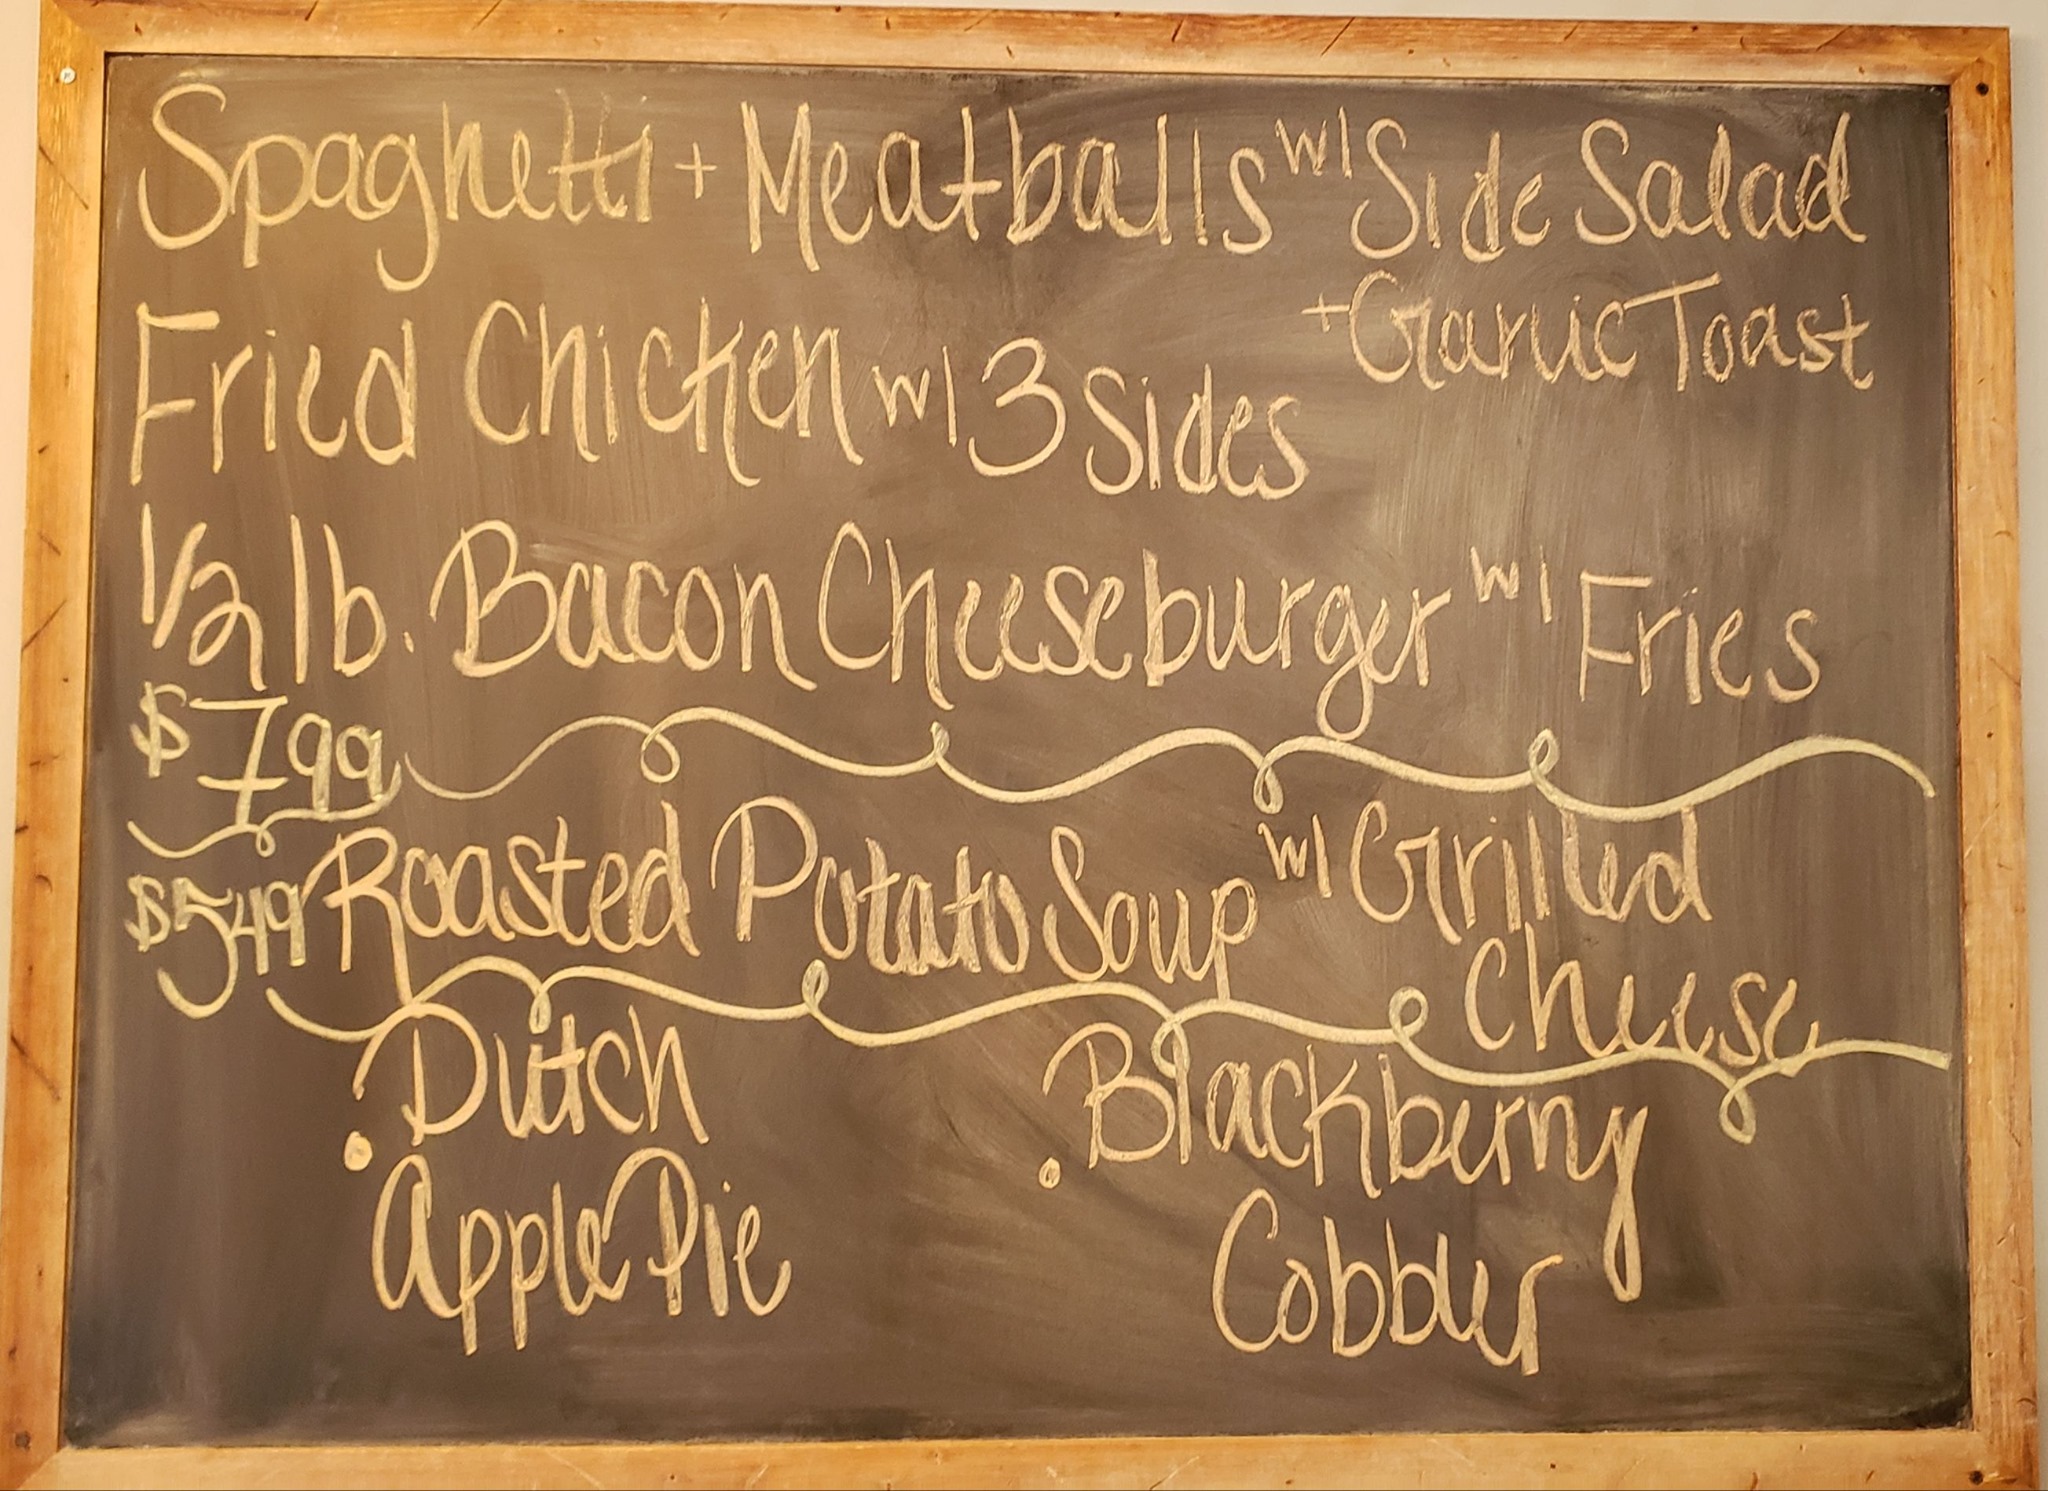 Spaghetti + Meatballs w/ Side Salad
+ Garlic Toast
Fried Chicken w/ 3 Sides
1/2 lb. Bacon Cheeseburger w/ Fries
$7.99
$5.49 Roasted Potato Soup w/ Grilled
Cheese
• Dutch
Apple Pie
• Blackberry
Cobbler